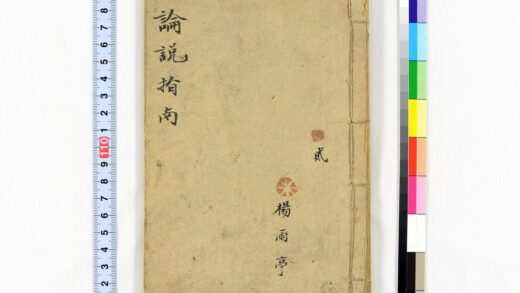 論説指南
貳
楊雨亭
8
7
6
5
4
3
2
1
110
9
8
7
6
5
4
3
2